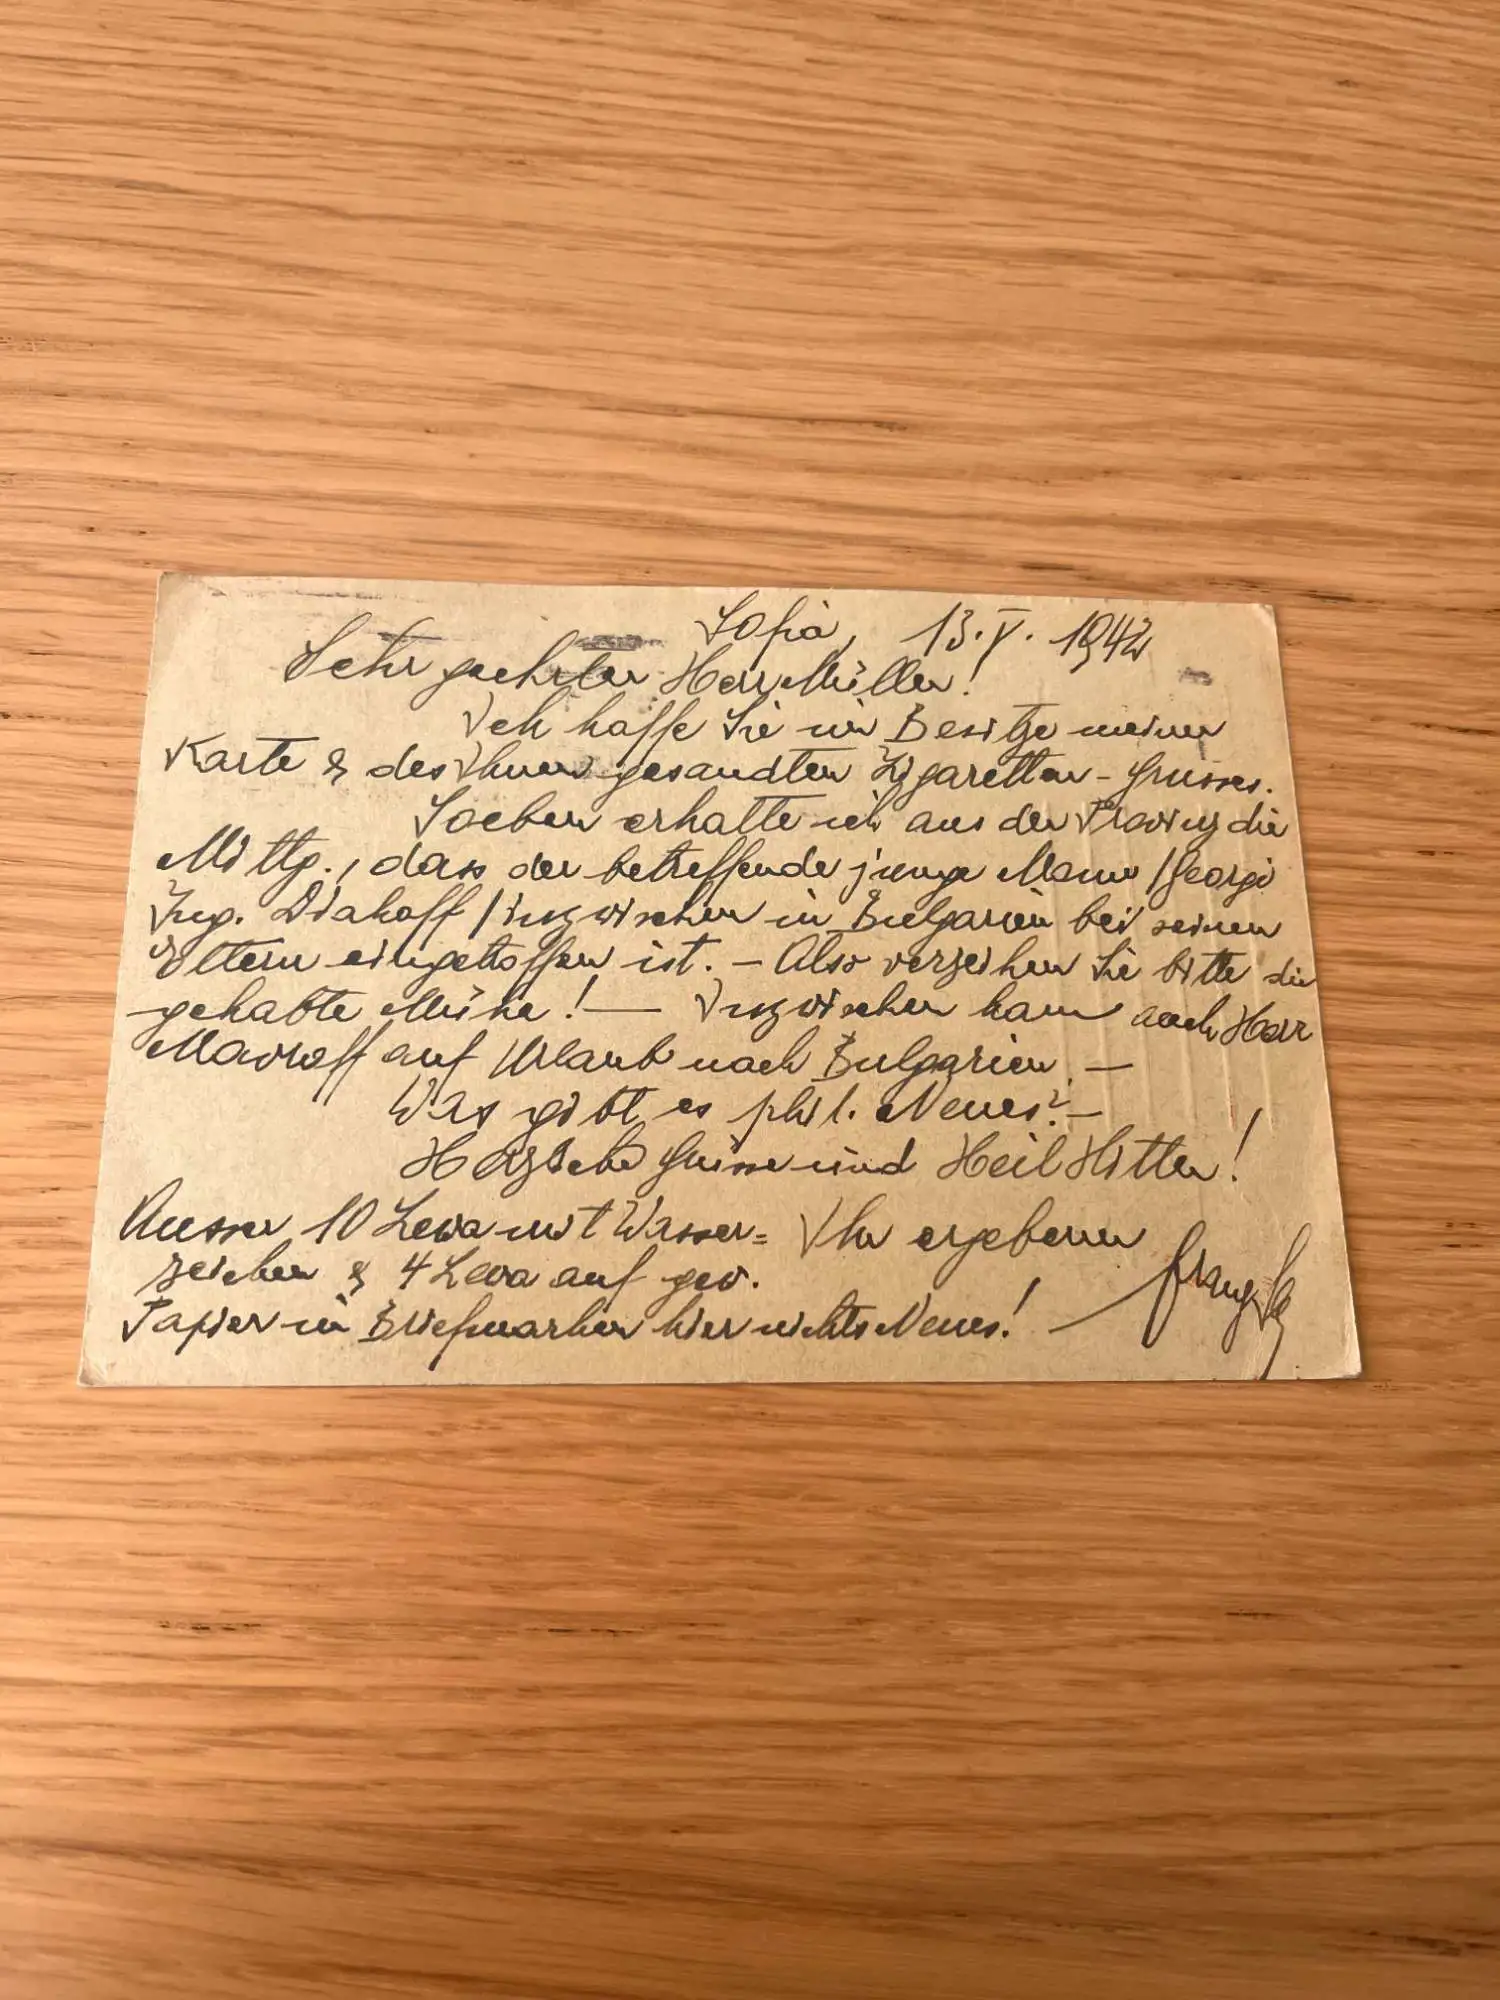 Sofia, 13.V.1942
Sehr geehrter Herr Müller!
Ich hoffe Sie im Besitze meiner
Karte & des Ihnen gesandten Zigaretten-Grusses.
Soeben erhalte ich aus der Provinz die
Mittg., dass der betreffende junge Mann /Georgi
Ing. Diakoff/ inzwischen in Bulgarien bei seinen
Eltern eingetroffen ist. – Also verzeihen Sie bitte die
gehabte Mühe! — Inzwischen kam auch Herr
Mavroff auf Urlaub nach Bulgarien. —
Was gibt es phil. Neues? –
Herzliche Grüsse und Heil Hitler!
Ausser 10 Lewa mit Wasser= Ihr ergebener
zeichen & 4 Lewa auf gew.
Papier in Briefmarken hier nichts Neues! —